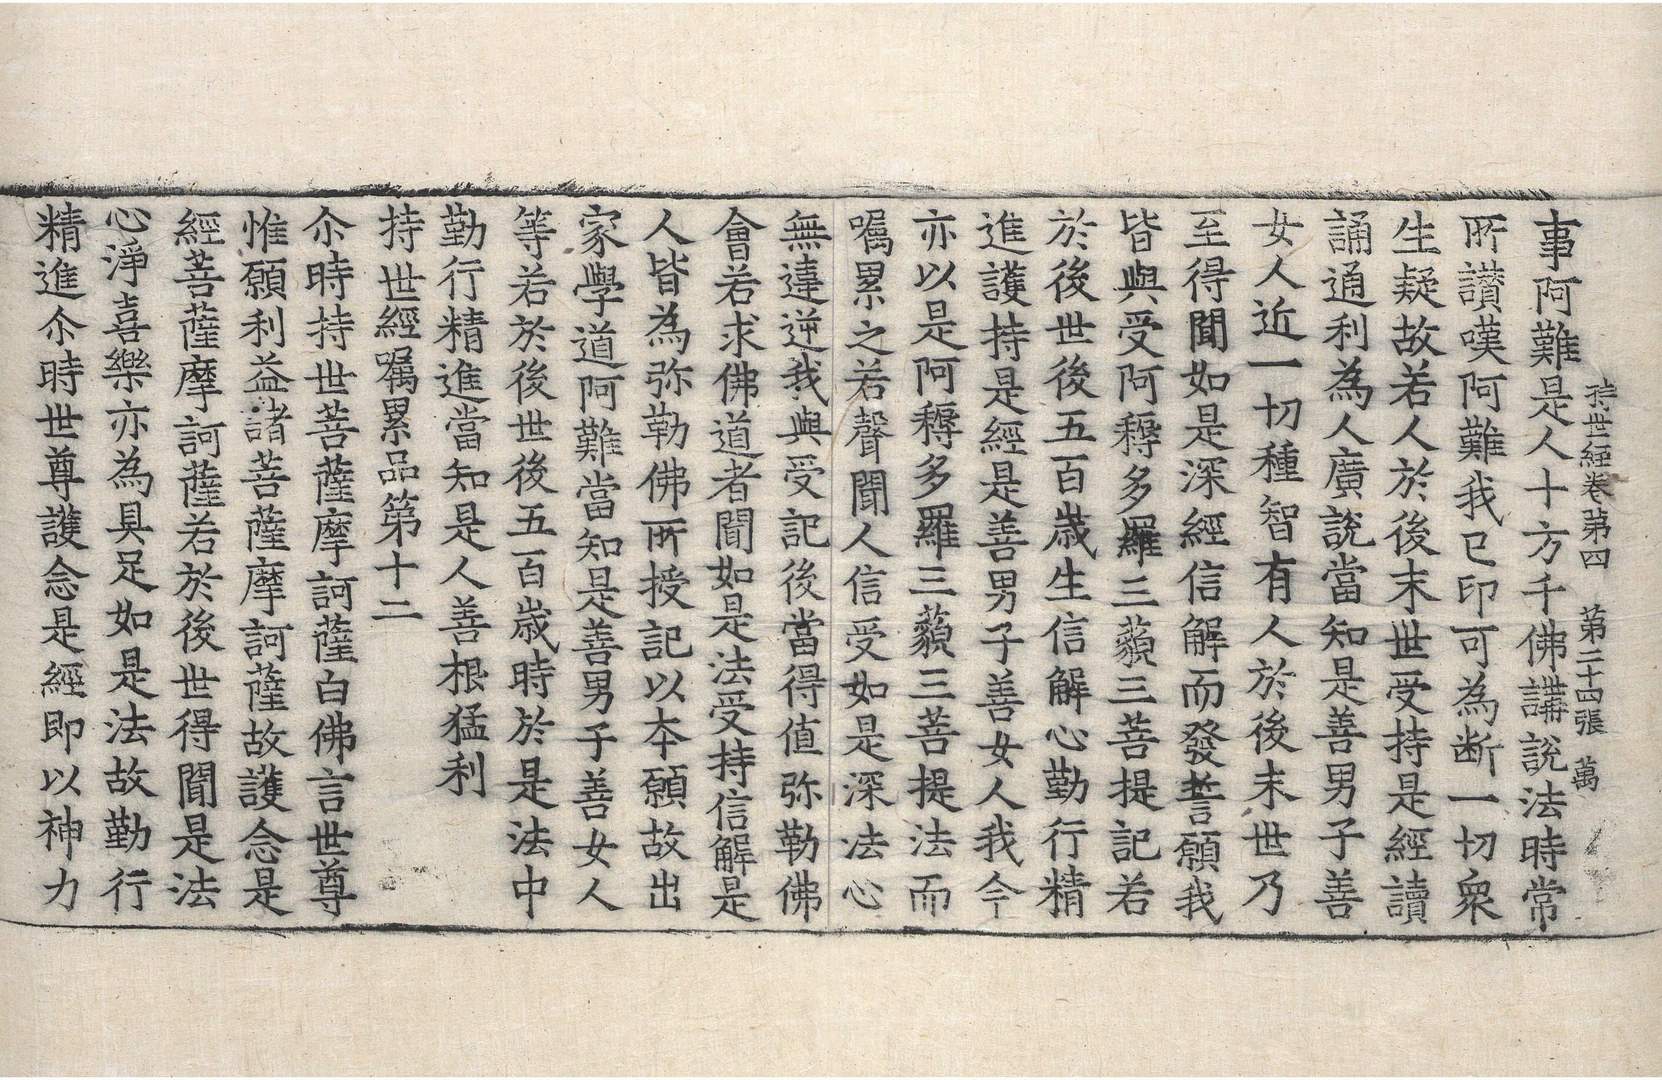 持世經卷第四　第二十四張　萬
事阿難是人十方千佛講說法時常
所讃嘆阿難我已印可為断一切衆
生疑故若人於後末世受持是經讀
誦通利為人廣說當知是善男子善
女人近一切種智有人於後末世乃
至得聞如是深經信解而發誓願我
皆與受阿耨多羅三藐三菩提記若
於後世後五百歲生信解心勤行精
進護持是經是善男子善女人我今
亦以是阿耨多羅三藐三菩提法而
嘱累之若聲聞人信受如是深法心
無違逆我與受記後當得值弥勒佛
會若求佛道者聞如是法受持信解是
人皆為弥勒佛所授記以本願故出
家學道阿難當知是善男子善女人
等若於後世後五百歲時於是法中
勤行精進當知是人善根猛利
持世經嘱累品第十二
尒時持世菩薩摩訶薩白佛言世尊
惟願利益諸菩薩摩訶薩故護念是
經菩薩摩訶薩若於後世得聞是法
心淨喜樂亦為具足如是法故勤行
精進尒時世尊護念是經即以神力